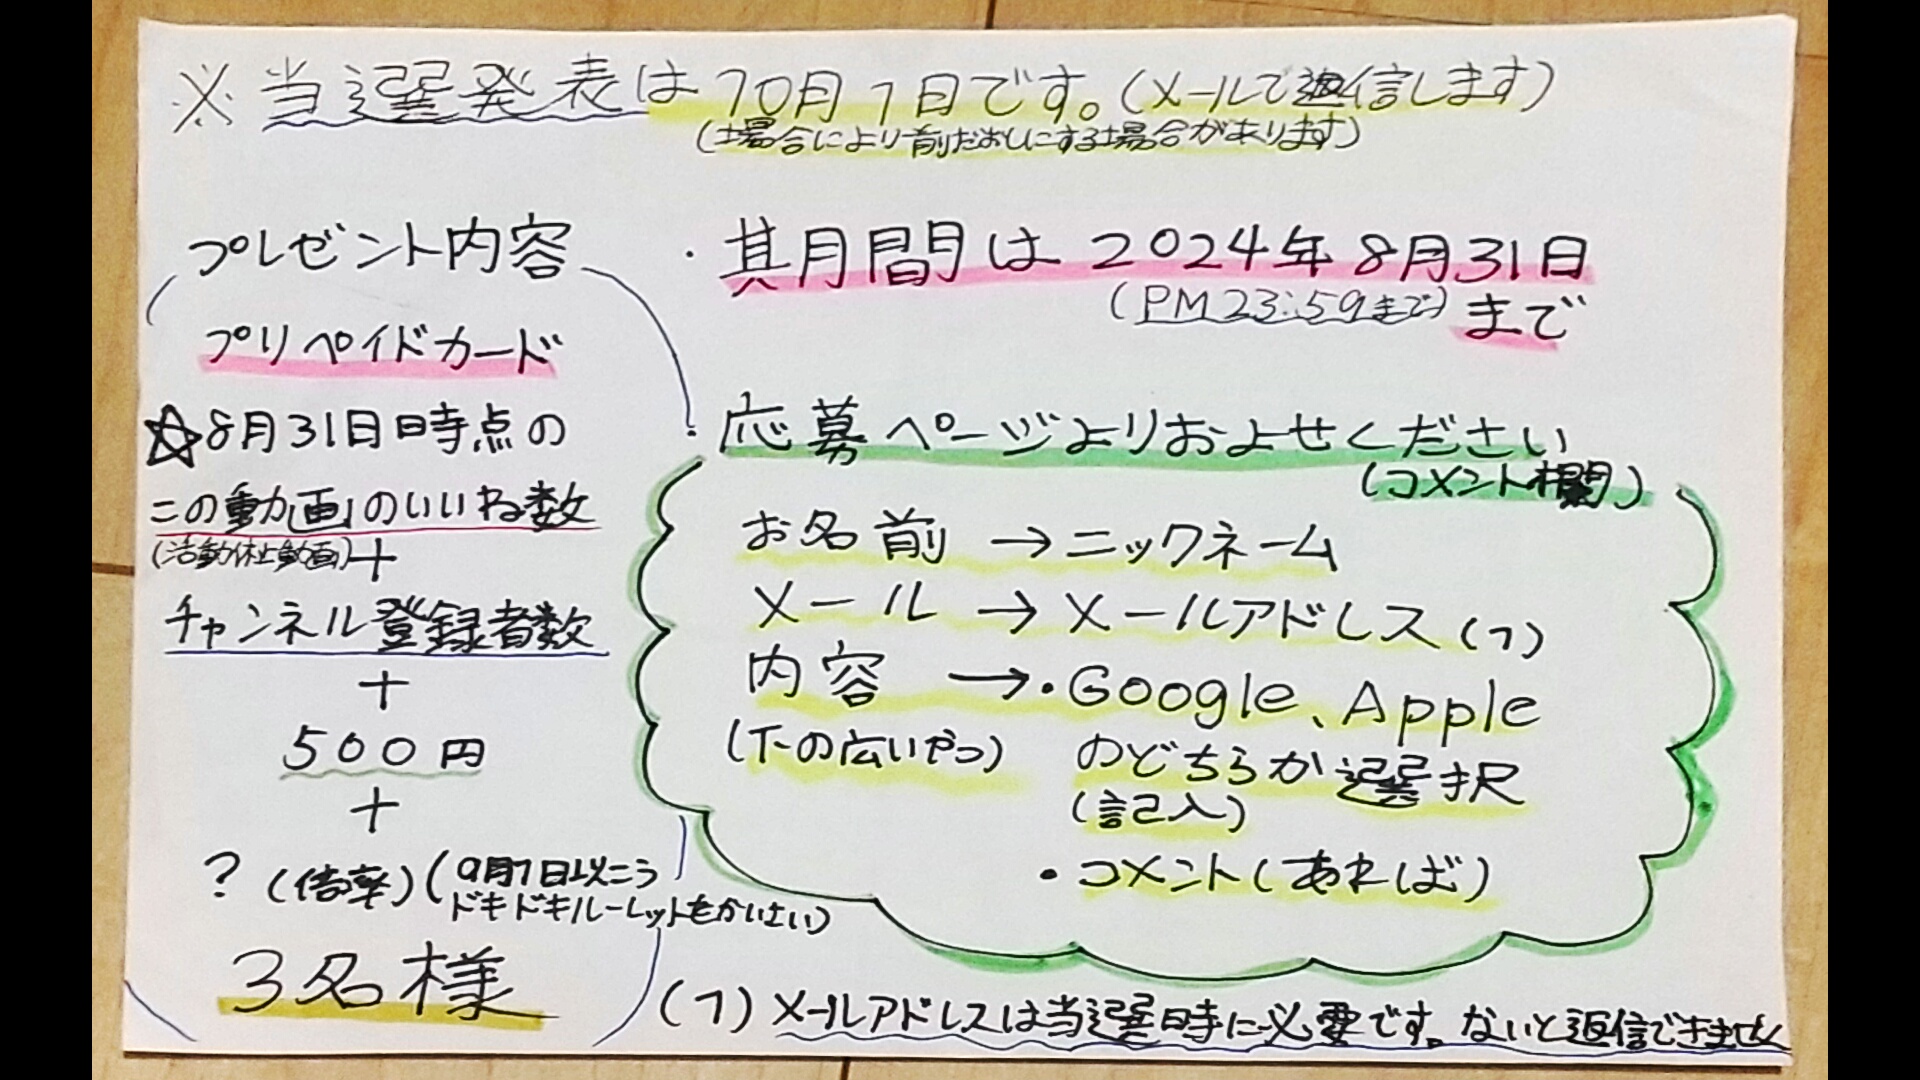 ※当選発表は10月1日です。(メールで返信します)
(場合により前だおしにする場合があります)
プレゼント内容
プリペイドカード
☆8月31日時点の
この動画のいいね数
(活動休止動画)+
チャンネル登録者数
+
500円
+
?(倍率)(9月1日以こう
ドキドキルーレットをかいさい)
3名様
・其月間は2024年8月31日
(PM23:59まで)まで
・応募ページよりおよせください
(コメント欄)
お名前→ニックネーム
メール→メールアドレス(1)
内容→・Google、Apple
(下の広いやつ)のどちらか選択
(記入)
・コメント(あれば)
(1)メールアドレスは当選時に必要です。ないと返信できません